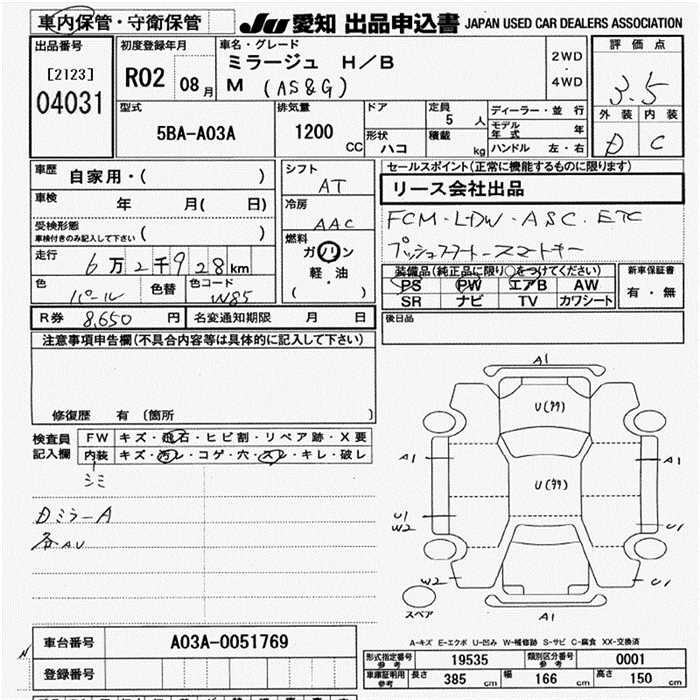 車内保管・守衛保管
JU 愛知 出品申込書 JAPAN USED CAR DEALERS ASSOCIATION
出品番号
[2123]
04031
初度登録年月
R02 08月
車名・グレード
ミラージュ H/B
M (AS&G)
2WD
・
4WD
評価点
3.5
外装 内装
D C
型式
5BA-A03A
排気量
1200 CC
ドア
形状
ハコ
定員
5 人
積載
kg
ディーラー・並行
モデル年式 年
ハンドル 左・右
車歴 自家用・( )
車検 年 月( 日)
受検形態
車検付きのみ記入して下さい ( )
走行 6万2千928km
色 パール 色替 色コード W85
シフト
AT
冷房
AAC
燃料
ガソリン
軽・油
( )
セールスポイント(正常に機能するものに限ります)
リース会社出品
FCM・LDW・ASC・ETC
プッシュスタート・スマートキー
装備品(純正品に限り○をつけてください)
PS PW エアB AW
SR ナビ TV カワシート
新車保証書
有・無
R券 8,650 円 名変通知期限 月 日
後日品
注意事項申告欄(不具合内容等は具体的に記入して下さい)
修復歴 有 (箇所 )
検査員
記入欄
FW キズ・飛石・ヒビ割・リペア跡・X要
内装 キズ・汚レ・コゲ・穴・スレ・キレ・破レ
シミ
Dミラー A
各AU
A1
U(タタ)
A1
A1
U(タタ)
U1
W2
U1
W2
U1
スペア
A1
A-キズ E-エクボ U-凹み W-補修跡 S-サビ C-腐食 XX-交換済
車台番号 A03A-0051769
登録番号
型式指定番号
参考
19535
類別区分番号
参考
0001
車庫証明用
参考
長さ 385 cm 幅 166 cm 高さ 150 cm